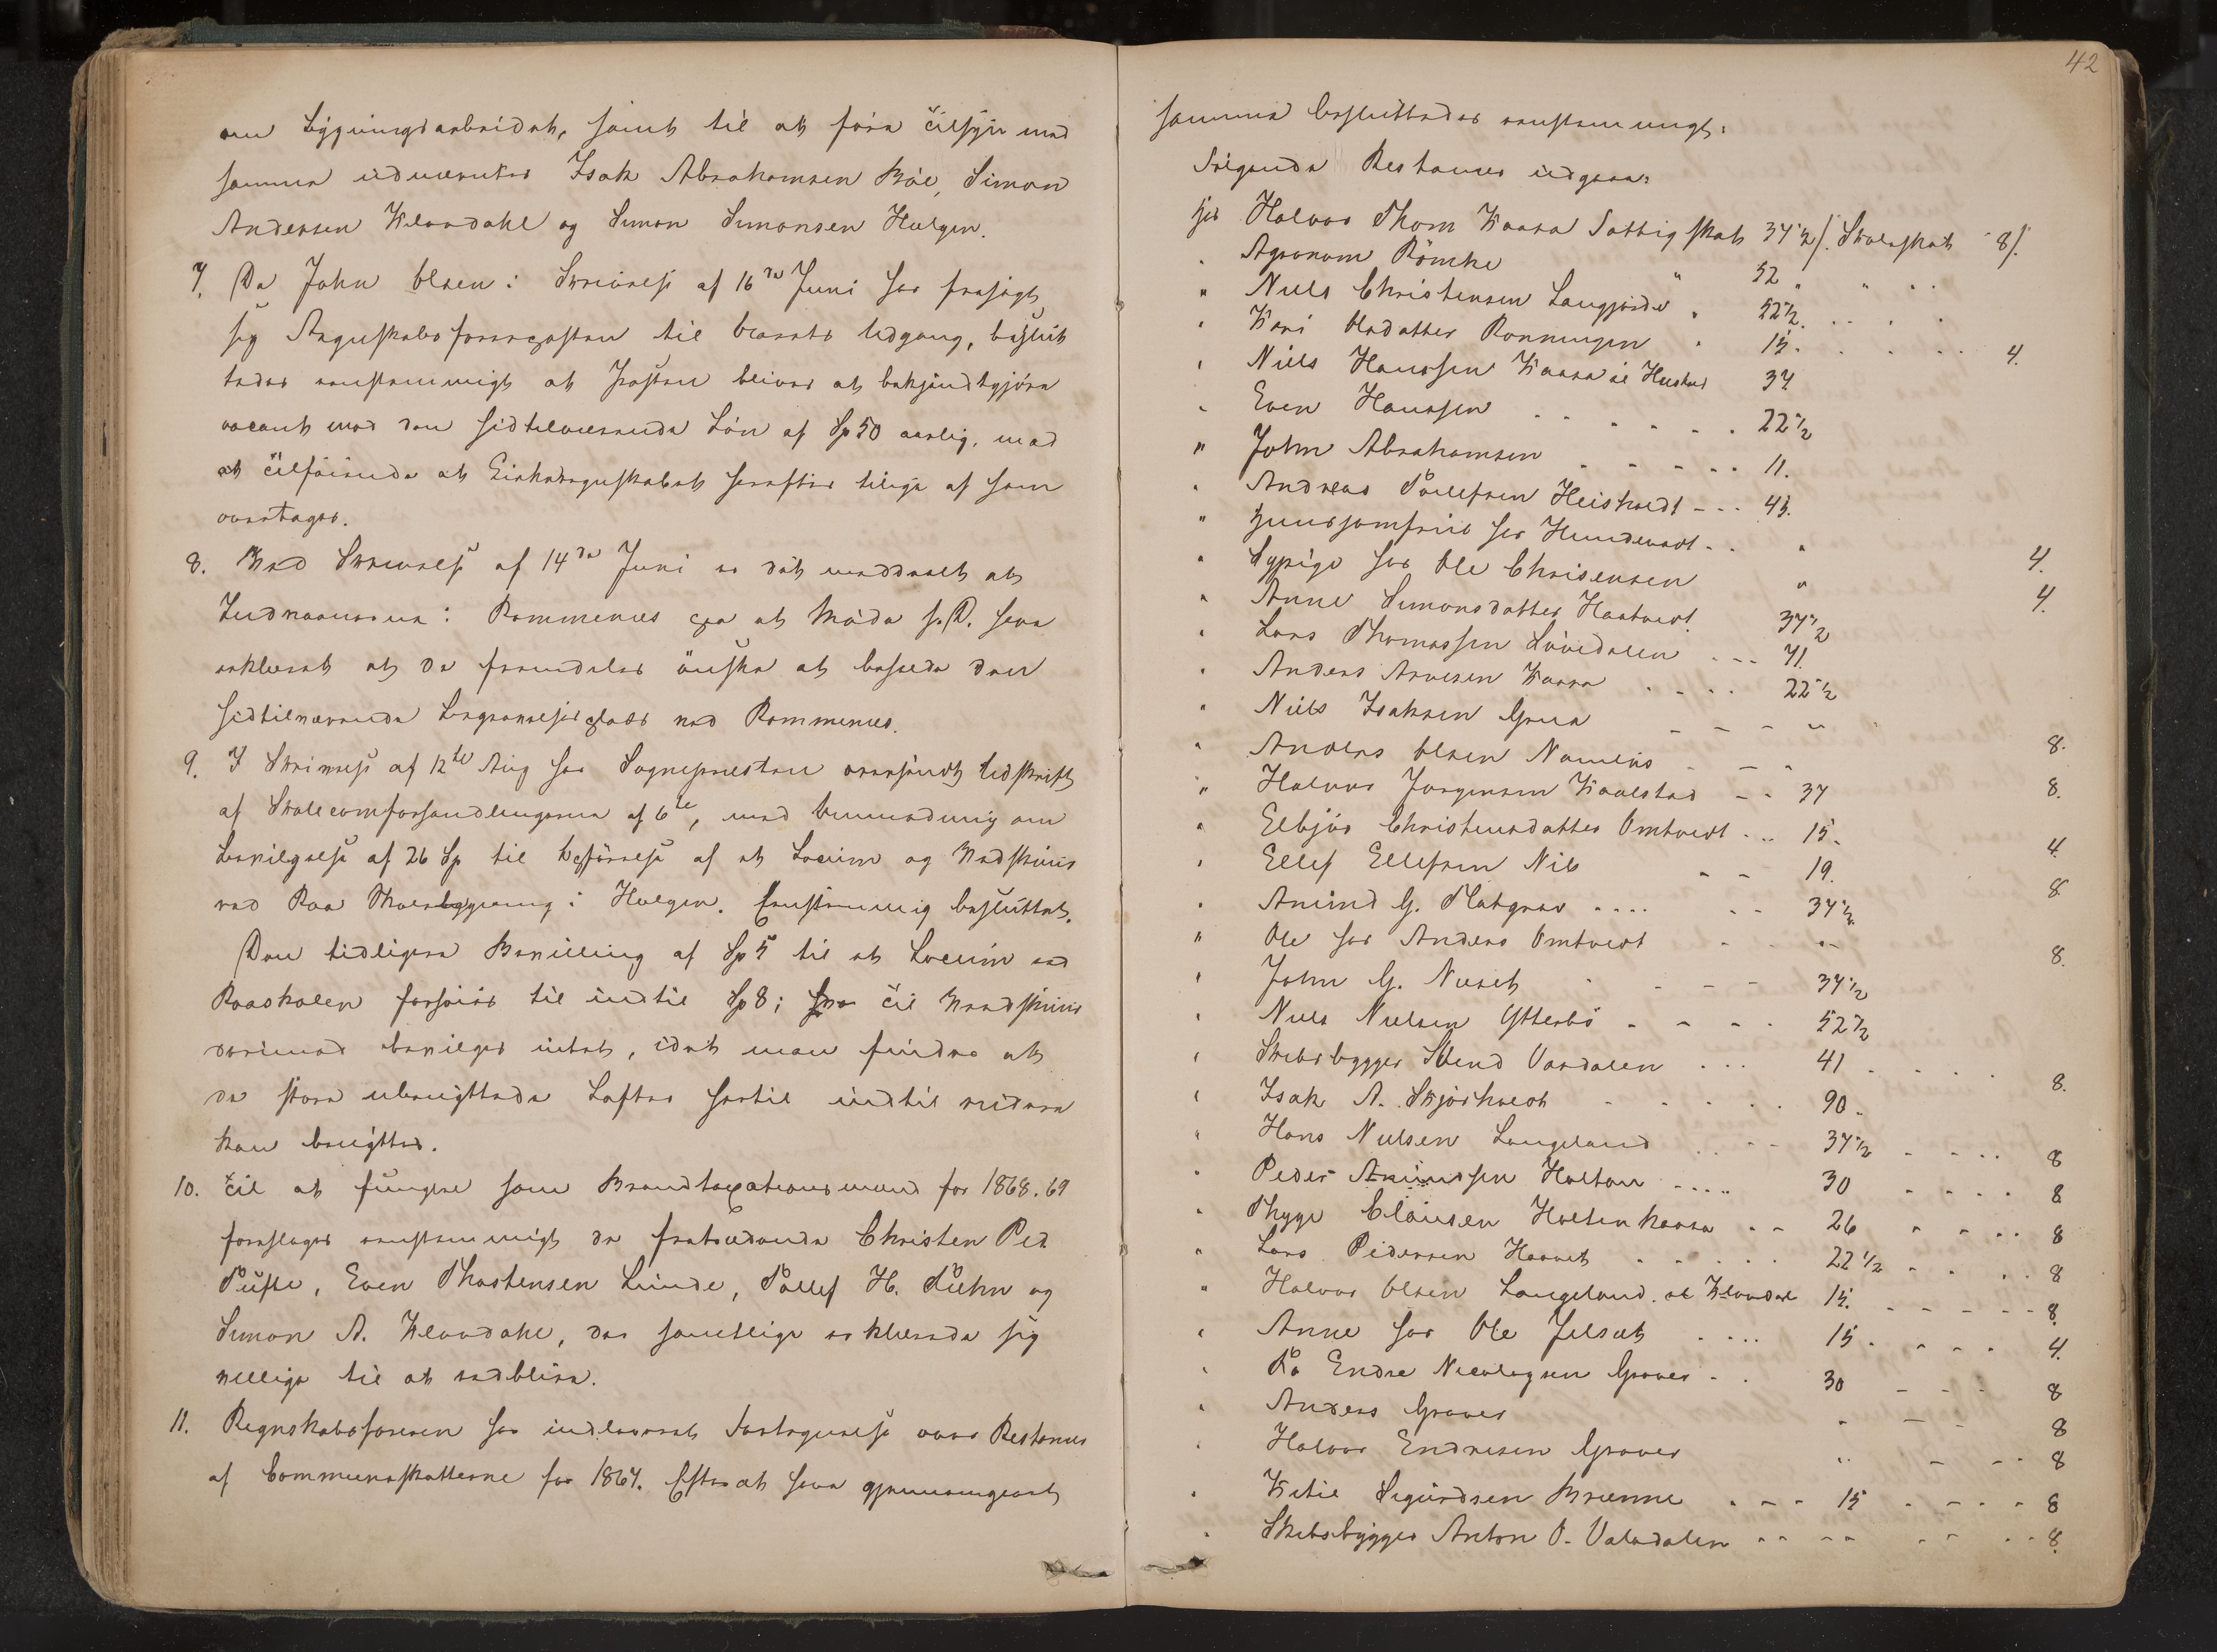 om Bygningsarbeidet, samt til at føre Tilsyn med
samme udnævntes Isak Abrahamsen Bøe, Simon
Andersen Klovdahl og Simon Simonsen Helgen.
7. Da John Olsen i Skrivelse af 16de Juni har frasagt
sig Regnskabsførerposten til Aarets Udgang, beslut
tedes eenstemmigt at Posten bliver at bekjendtgjøre
vacant med den hidtilværende Løn af Sp 50 aarlig, med
et Tilføiende at Kirkeregnskabet herefter tillige af ham
overtages.
8. Ved Skrivelse af 14de Juni er det meddeelt at
Indvaanerne i Rommenæs paa et Møde s.D. have
erklæret at de fremdeles ønske at beholde den
hidtilværende Begravelsesplads ved Rommenæs.
9. I Skrivelse af 12te Aug har Sognepræsten oversendt Udskrift
af Skolecomforhandlingerne af 6te, med Anmodning om
Bevilgelse af 26 Sp til Opførelse af et Locum og Vedskuur
ved Raa Skolebygning i Helgen. Eenstemmig besluttet.
Den tidligere Bevilling af Sp 5 til et Locum ved
Raaskolen forhøies til indtil Sp 8; til Vedskuur
derimod bevilges intet, idet man finder at
det store ubenyttede Lofter hertil indtil videre
kan benyttes.
10. Til at fungere som Brandtaxationsmænd for 1868.69
foreslages eenstemmigt de fratrædende Christen Ped
Tufte, Even Thostensen Lunde, Tollef H. Tuehn og
Simon A. Klovdahl, der samtlige erklærede sig
villige til at vedblive.
11. Regnskabsføreren har indleveret Fortegnelse over Restancer
af Communeskatterne for 1867. Efter at have gjennemgaaet
42
samme besluttedes eenstemmigt:
Følgende Restancer udgaar:
hos Halvor Thom Kaasa Fattigskat 37 1/2 /. Skoleskat 8/.
" Agronom Römcke " 52 " " "
" Niels Christensen Langjorde " 52 1/2 . . . .
" Kari Olsdatter Rønningen " 15 . . . . 4.
" Niels Hanssen Kaasa 37
" Even Hanssen . . . . . . 22 1/2
" John Abrahamsen . . . . . 11.
" Andreas Tollefsen Heisholdt - - - 45.
" Huusjomfrue hos Hundevadt . . " 4.
" Sypige hos Ole Chrisensen " 4.
" Anne Simonsdatter Haatvedt 37 1/2
" Lars Thomassen Løvdalen . . . 41
" Anders Arvesen Kaasa . . . . 22 1/2
" Niels Isaksen Grua - - - - " 8.
" Anders Olsen Namløs . - - " 8.
" Halvor Jørgensen Kaalstad - - 37
" Elbjør Christensdatter Omtvedt . . 15. 4.
" Ellef Ellefsen Nib - - 19. 8.
" Amund G. Plategrav . . . . - - 37 1/2
" Ole hos Anders Omtvedt - - - " 8.
" John G. Nesset . - - - 37 1/2
" Niels Nielsen Ytterbø - - - . 52 1/2
" Skibsbygger Svend Vardalen . . . 41 . . . . 8.
" Isak A. Skjørholdt . . . . . 90 .
" Hans Nielsen Langeland . . - - 37 1/2 - - . . 8
" Peder Amundsen Holtan . . . . 30 - - . . 8
" Thyge Clausen Holtenkaasa . - - 26 " - . . 8
" Lars Pedersen Haavet . . . . . 22 1/2 . . . . 8
" Halvor Olsen Langeland . 15. - - - - - 8.
" Anne hos Ole Jelset . . . 15 . - - . 4.
" Endre Nicolaysen Graver . . 30 - - - 8
" Anders Graver " - - 8
" Halvor Endresen Graver " - - - 8
" Ketil Sigurdsen Brenne . - - 15 . - - - 8
" Skibsbygger Anton O. Valadalen - - - - - - . - 8.